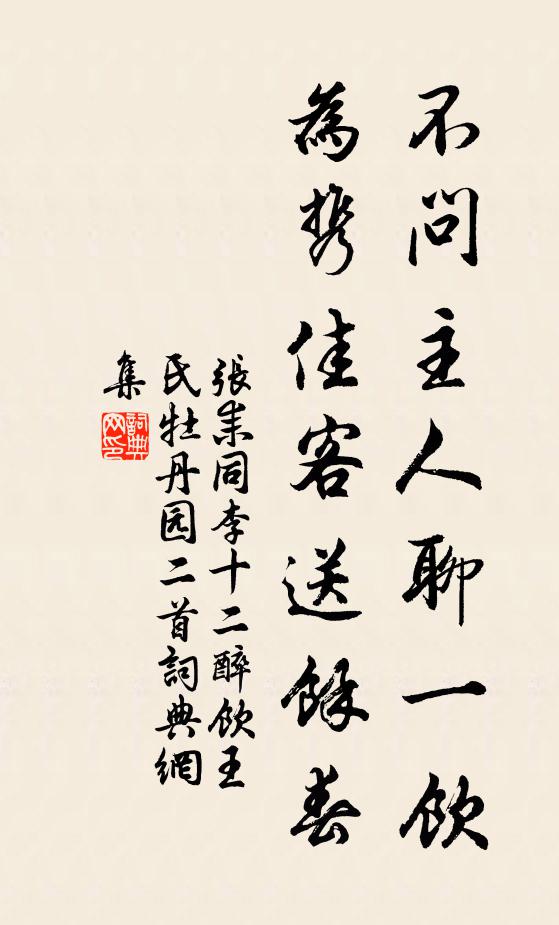 不問主人聊一飲
為携佳客送餘春
張耒同李十二醉飲王
民牡丹园二首詞典網
集
詞典
网印